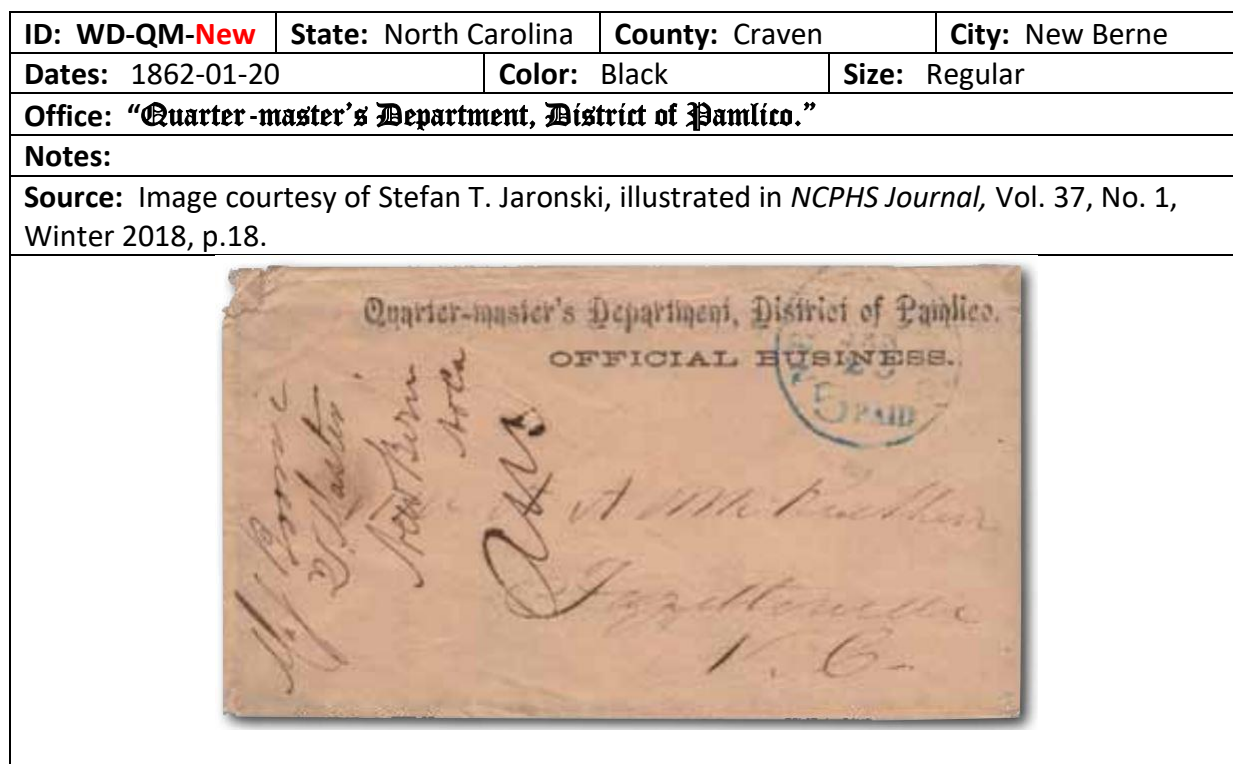 ID: WD-QM-New State: North Carolina County: Craven City: New Berne
Dates: 1862-01-20 Color: Black Size: Regular
Office: “Quarter-master’s Department, District of Pamlico.”
Notes:
Source: Image courtesy of Stefan T. Jaronski, illustrated in NCPHS Journal, Vol. 37, No. 1,
Winter 2018, p.18.
Quarter-master's Department, District of Pamlico.
OFFICIAL BUSINESS.
JAN
5 PAID
New Bern
A
N. C.